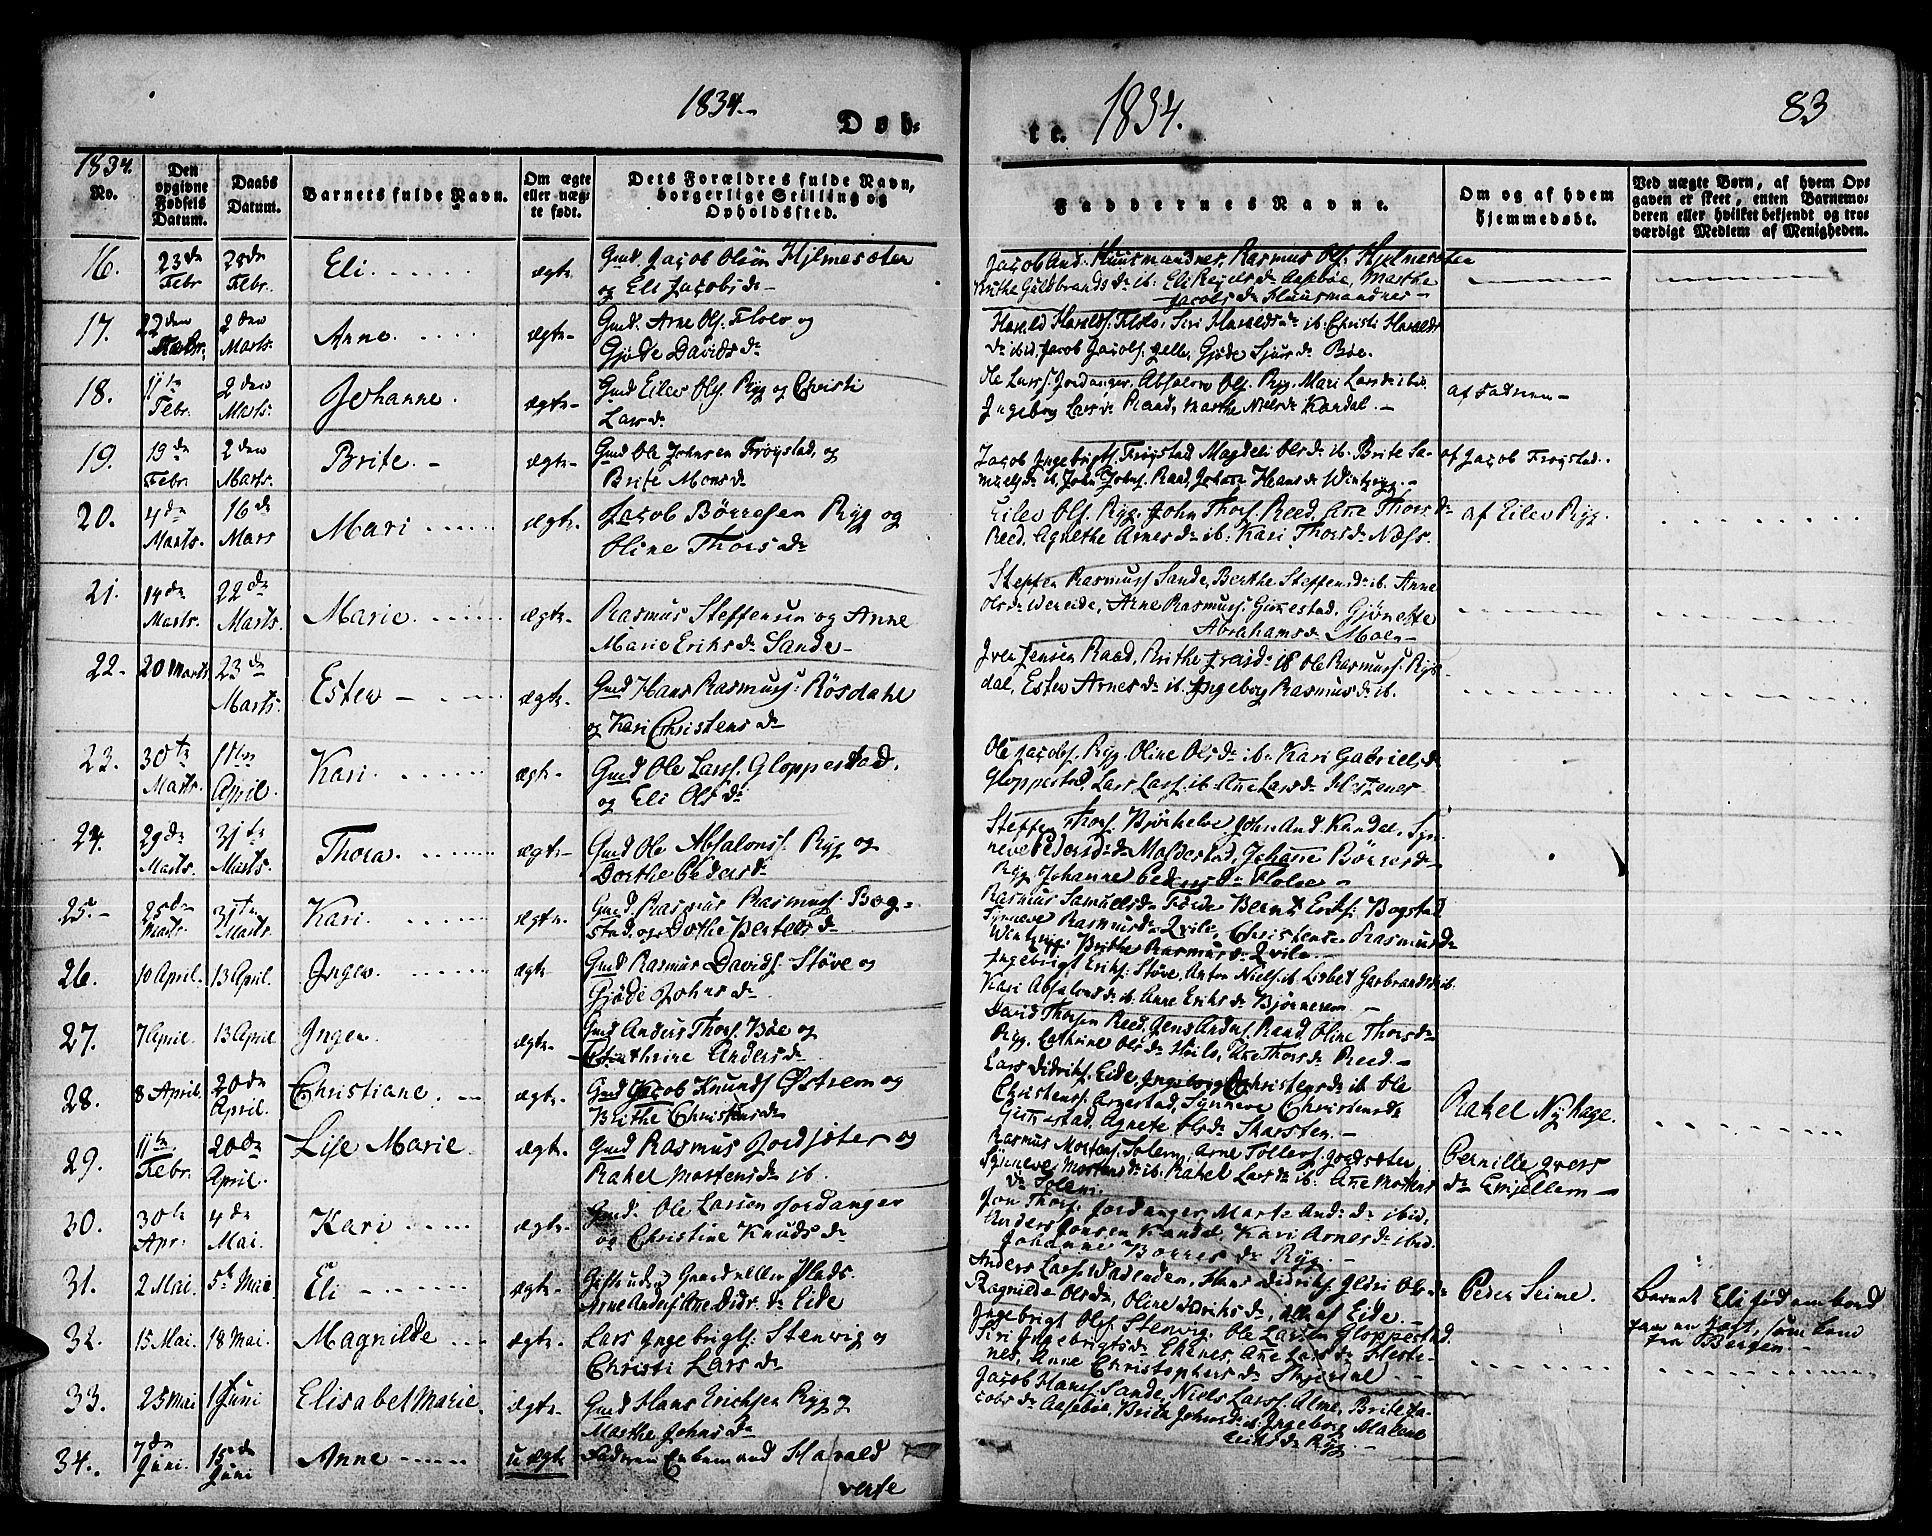 1834.
Døb-
te.
1834.
83
1834.
No.
Den
opgivne
Fødsels
Datum.
Daabs
Datum.
Barnets fulde Navn.
Om ægte
eller uæg-
te født.
Dets Forældres fulde Navn,
borgerlige Stilling og
Opholdssted.
Faddernes Navne.
Om og af hvem
hjemmedøbt.
Ved uægte Børn, af hvem Op-
gaven er skeet, enten Barnemo-
deren eller hvilket bekjendt og tro-
værdigt Medlem af Menigheden.
16.
23de
Febr
Febr.
Eli
ægte
Gmd. Jacob Olsen Hjlmesæter
og Eli Jacobsdr
Jacob And. Huusmandnes, Rasmus Ols. Hjelmesæter
Brithe Guldbrandsdr ib. Eli Reyelsdr Aasebøe, Marthe
Jacobsdr Huusmandnes
17.
22den
Febr.
2den
Marts.
Anne
ægte
Gmd. Arne Ols. Flolo og
Gjøde Davidsdr
Harald Haralds. Flolo, Siri Haraldsdr ib. Christi Haralds
dr ibid, Jacob Jacobs. Gjøde Sjursdr Bøe.
18.
11te
Febr.
2den
Marts.
Johanne.
ægte
Gmd Eilev Ols. Ryg og Christi
Larsdr
Ole Larss. Jordanger, Absalon Ols. Ryg. Mari Larsdr
Ingeborg Larsdr Raad, Marthe Nielsdr Kandal.
af Fadren
19.
19de
Febr.
2den
Marts.
Brite.
ægte
Gmd Ole Johnsen Frøystad, og
Brite Monsdr
Jacob Ingebrigts. Frøystad Magdeli Olsdr ib. Brite Sa-
muelsdr ib. John Johns. Raad, Johane Hansdr
af Jacob Frøystad.
20.
4de
Marts.
16de
Mars
Mari
ægte
Jacob Børresen Ryg og
Oline Thorsdr
Eilev Ols. Ryg. John Thors. Reed, Ane Thorsdr
Reed, Agnethe Arnesdr ib. Kari Thorsdr Næss.
af Eilev Ryg.
21.
14de
Marts.
22de
Marts.
Marie
ægte
Rasmus Steffensen og Anne
Marie Eriksdr Sande
Steffen Rasmuss Sande, Berthe Steffensdr ib. Anne
Olsdr Wereide, Arne Rasmuss. Gimestad. Gjønette
Abrahamsdr Moen
22.
20 Marts.
23de
Marts.
Ester
ægte
Gmd Hans Rasmuss: Røsdahl
og Kari Christensdr
Iver Jensen Raad, Brithe ib Ole Rasmuss. Ryss-
dal, Ester Arnesdr ib. Ingeborg Rasmusdr ib.
23.
30te
Marts.
April.
Kari
ægte
Gmd Ole Larss. Gloppestad,
og Eli Olsdr
Ole Jacobs. Ryg. Oline Olsdr ib. Kari Gabrielsdr
Gloppestad, Lars Larss. ib. Ane Larsdr Hestenes.
24.
29de
Marts.
31te
Marts.
Thora.
ægte
Gmd Ole Absalons. Ryg og
Dorthe Pedersdr
Steffen Thors. Bjørkelo, John And. Kandal, Syn-
neve Pedersdr Mastestad, Johane Børresdr
Ryg. Johanne Pedersdr Flolo
25.
25de
Marts.
31te
Marts.
Kari
ægte
Gmd. Rasmus Rasmuss Bog-
stad, og Dorthe Bertelsdr
Rasmus Samuels Førde, Bernt Eriks: Bogstad
Synneve Rasmusdr Qvile, Christense Rasmusdr
Brithe Rasmusdr Qvile
26.
10 April.
13 April.
Inger
ægt
Gmd Rasmus Davids. Støve og
Gjøde Johnsdr
Ingebrigt Eriks: Støve, Anton Niels. ib. Lisbet Garbrandsdr ib.
Kari Absalonsdr ib. Anne Eriksdr Bjørnerem
27.
7 April.
13 April
Inger
ægte
Gmd Anders Thors. Bøe og
Andersdr
David Thorsen Reed, Jens Anders. Raad, Oline Thorsdr
Ryg. Cathrine Olsdr Ane Thorsdr Reed.
28.
8 April.
20de
April.
Christiane.
ægte
Gmd Jacob Knuds Østrem og
Brithe Christensdr
Lars Didriks. Eide, Ingeborg Christensdr ib. Ole
Christenss. Argestad, Synneve Christensdr
Gimestad, Agnete Olsdr Tharsten.
Rakel Nyhage.
29.
11te
Febr.
20de
April.
Lise Marie
ægte
Gmd Rasmus Jordsæter og
Rakel Mortensdr ib.
Rasmus Mortens. Solem, Arne Tollefs. Jordsæter,
Synneve Mortensdr ib. Rakel Larsdr ib. Ane Mortens
dr Solem.
Pernille Ivers
dr Evjellem
30.
30te
Apr:
4de
Mai.
Kari
ægte
Gmd. Ole Larsen Jordanger
og Christine Knudsdr
Jon Thors. Jordanger, Marte And:dr ibid,
Anders Jonsen Kandal, Kari Arnesdr ibid.
Johanne Børresdr Ryg.
31.
2 Mai.
5te Mai.
Eli
ægte
Gifte uden Gaard eller Plads.
Arne Anders Ane Didr.dr Eide
Anders Larss. Hans Didriks, Jldri Olsdr
Ragnilde Olsdr, Oline Didriksdr, alle af Eide.
Peder Seime.
Barnet Eli fød ombord
paa en Jagt, som kom
fra Bergen.
32.
15 Mai.
18 Mai.
Magnilde
ægte
Lars Ingebrigts. Stenvig og
Christi Larsdr
Ingebrigt Ols. Stenvig, Ole Larsen Gloppestad.
Siri Ingebrigtsdr Ane Larsdr Heste-
nes, Anne Christophersdr
33.
25 Mai
1 Juni
Elisabet Marie.
ægte
Gmd Hans Erichsen Ryg og
Marthe Johnsdr
Jacob Hans. Sande, Niels Larss. Alme, Brite Ja-
cobsdr Aasebøe, Brita Johnsdr ib. Ingeborg Malene
Eriksdr Ryg.
34.
7de
Juni.
15de
Juni
Anne
uægte
Faderen Enkemand Harald
verte